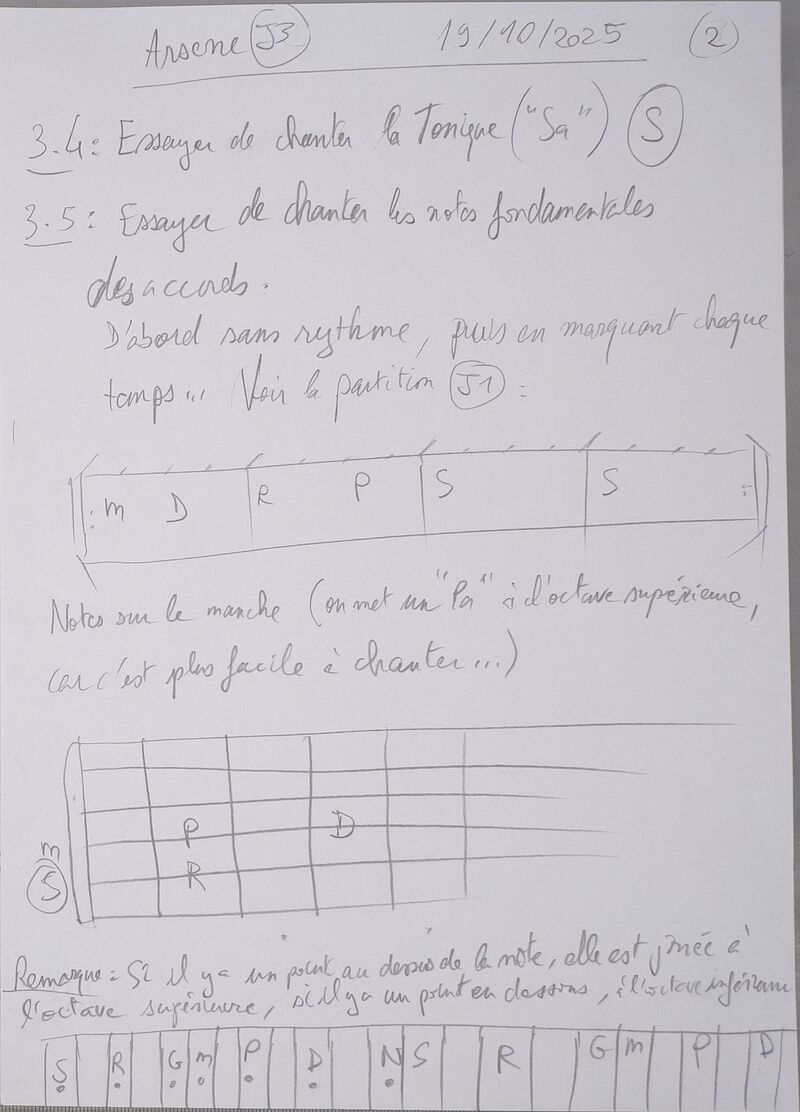 Arsene J3 19/10/2025 2
3.4: Essayer de chanter la Tonique ("Sa") S
3.5: Essayer de chanter les notes fondamentales
des accords.
D'abord sans rythme, puis en marquant chaque
temps... Voir la partition J1 :
: m D R P S S :
Notes sur le manche (on met un "Pa" à l'octave supérieure,
car c'est plus facile à chanter...)
P D
m
S R
Remarque: Si il y a un point au dessus de la note, elle est jouée à
l'octave supérieure, si il y a un point en dessous, à l'octave inférieure
Ṣ Ṛ G̣ ṃ P̣ Ḍ Ṇ S R G m P D